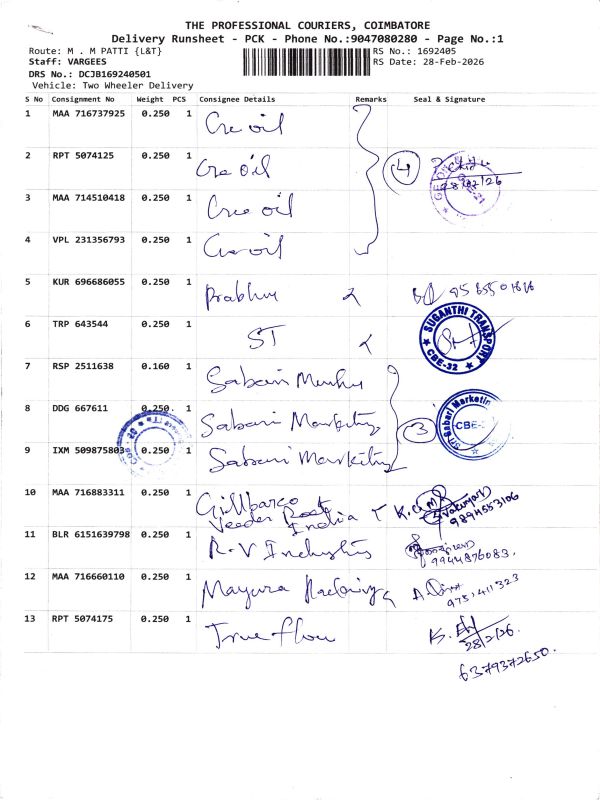 THE PROFESSIONAL COURIERS, COIMBATORE
Delivery Runsheet - PCK - Phone No.:9047080280 - Page No.:1
Route: M . M PATTI {L&T} RS No.: 1692405
Staff: VARGEES RS Date: 28-Feb-2026
DRS No.: DCJB169240501
Vehicle: Two Wheeler Delivery
S No Consignment No Weight PCS Consignee Details Remarks Seal & Signature
1 MAA 716737925 0.250 1 Cre oil
2 RPT 5074125 0.250 1 Cre oil 4 28/02/26
3 MAA 714510418 0.250 1 Cree oil
4 VPL 231356793 0.250 1 Cre oil
5 KUR 696686055 0.250 1 Prabhu
6 TRP 643544 0.250 1 ST SUGANTHI TRANSPORT CBE-32
7 RSP 2511638 0.160 1 Sabari
8 DDG 667611 0.250 1 Sabari Marketing 3 Sri Sabari Marketin CBE-
9 IXM 509875803 0.250 1 Sabari Marketing
10 MAA 716883311 0.250 1 Gilbarco
Veeder Root India
9894553106
11 BLR 6151639798 0.250 1 R.V Industries
9944876083.
12 MAA 716660110 0.250 1 Mayura
9751411323
13 RPT 5074175 0.250 1 True flow
28/2/26.
6379372650.